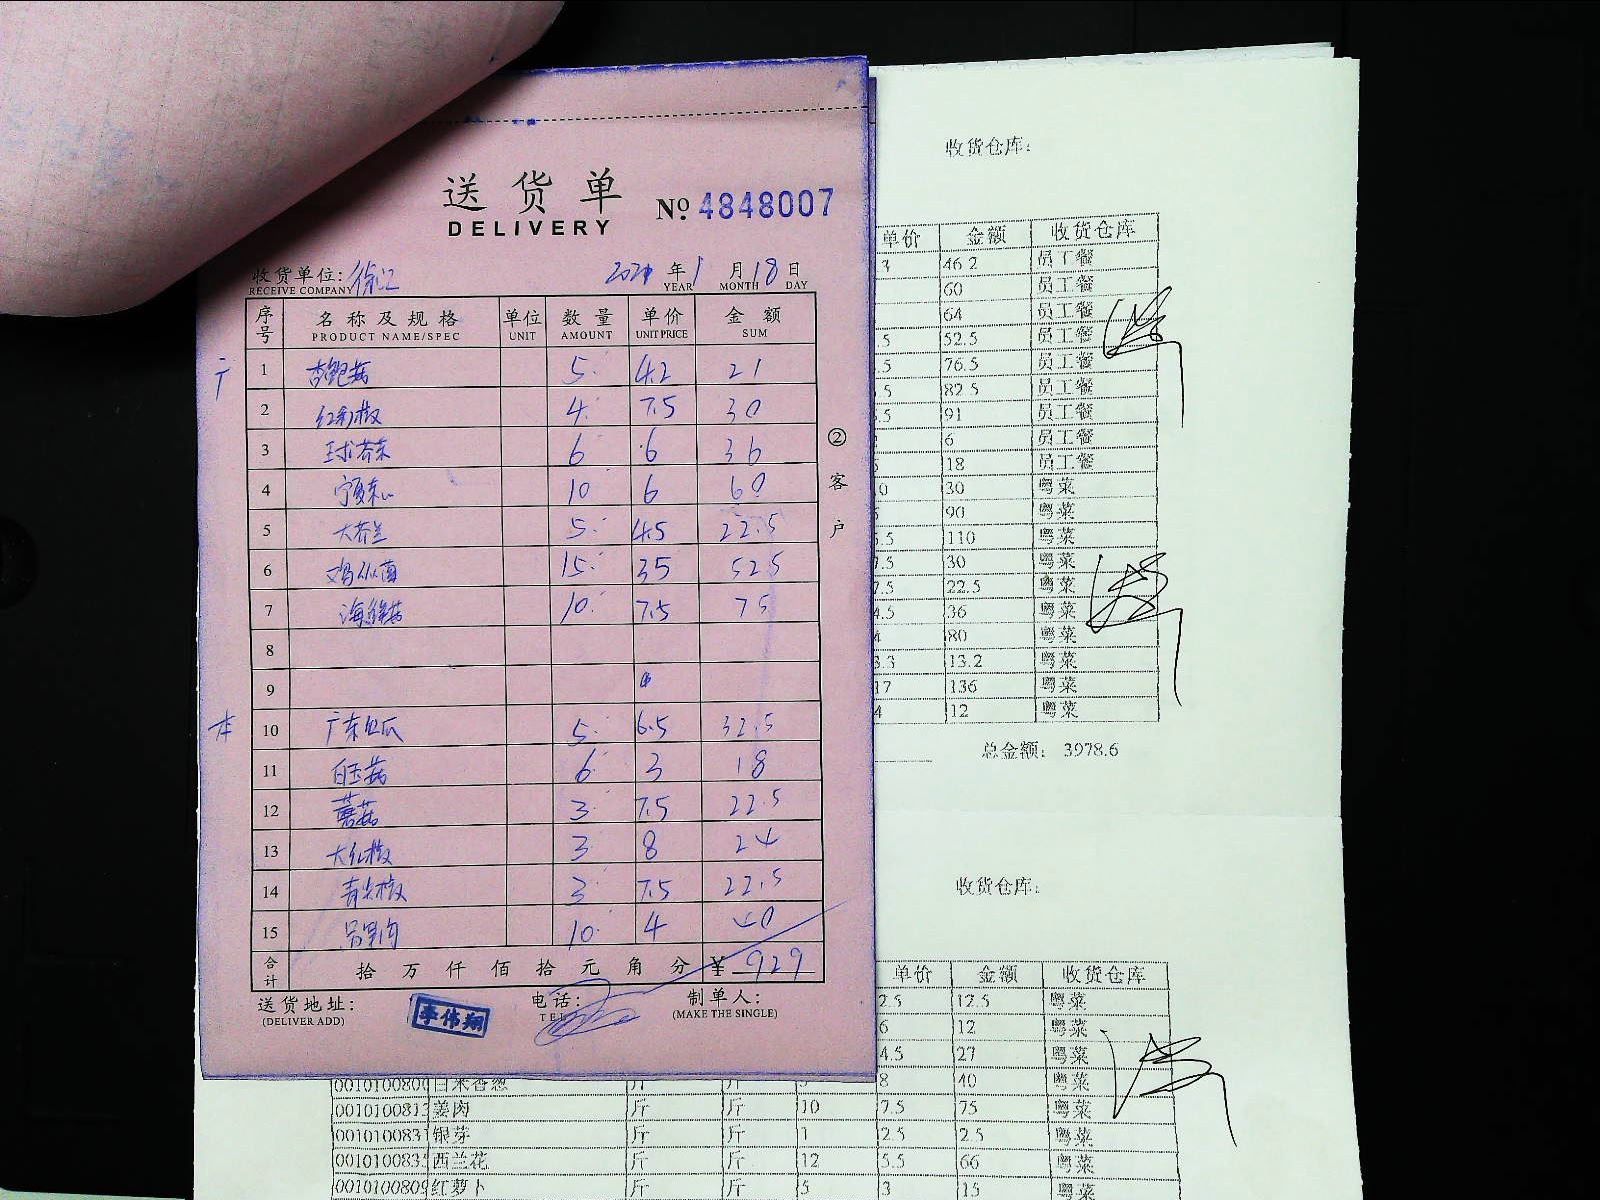 送货单
DELIVERY
№ 4848007
收货单位: 徐汇
RECEIVE COMPANY
2021 年 1 月 18 日
YEAR MONTH DAY
序号 名称及规格 单位 数量 单价 金额
PRODUCT NAME/SPEC UNIT AMOUNT UNIT PRICE SUM
1 杏鲍菇 5 4.2 21
2 红彩椒 4 7.5 30
3 球茎茴 6 6 36
4 宁夏菜心 10 6 60
5 大芥兰 5 4.5 22.5
6 鸡枞菌 15 35 525
7 海鲜菇 10 7.5 75
8
9
10 广东丝瓜 5 6.5 32.5
11 白玉菇 6 3 18
12 蘑菇 3 7.5 22.5
13 大红椒 3 8 24
14 青尖椒 3 7.5 22.5
15 10 4 40
合计 拾 万 仟 佰 拾 元 角 分 ¥ 929
送货地址:
(DELIVER ADD)
李伟翔
电话:
TEL
制单人:
(MAKE THE SINGLE)
② 客户
收货仓库:
单价 金额 收货仓库
46.2 员工餐
60 员工餐
64 员工餐
52.5 员工餐
76.5 员工餐
82.5 员工餐
91 员工餐
6 员工餐
18 员工餐
30 粤菜
90 粤菜
110 粤菜
30 粤菜
22.5 粤菜
4.5 36 粤菜
4 80 粤菜
3.3 13.2 粤菜
17 136 粤菜
4 12 粤菜
总金额: 3978.6
收货仓库:
单价 金额 收货仓库
2.5 12.5 粤菜
6 12 粤菜
4.5 27 粤菜
8 40 粤菜
姜肉 斤 斤 10 7.5 75 粤菜
银芽 斤 斤 1 2.5 2.5 粤菜
西兰花 斤 斤 12 5.5 66 粤菜
红萝卜 斤 斤 5 3 15 粤菜